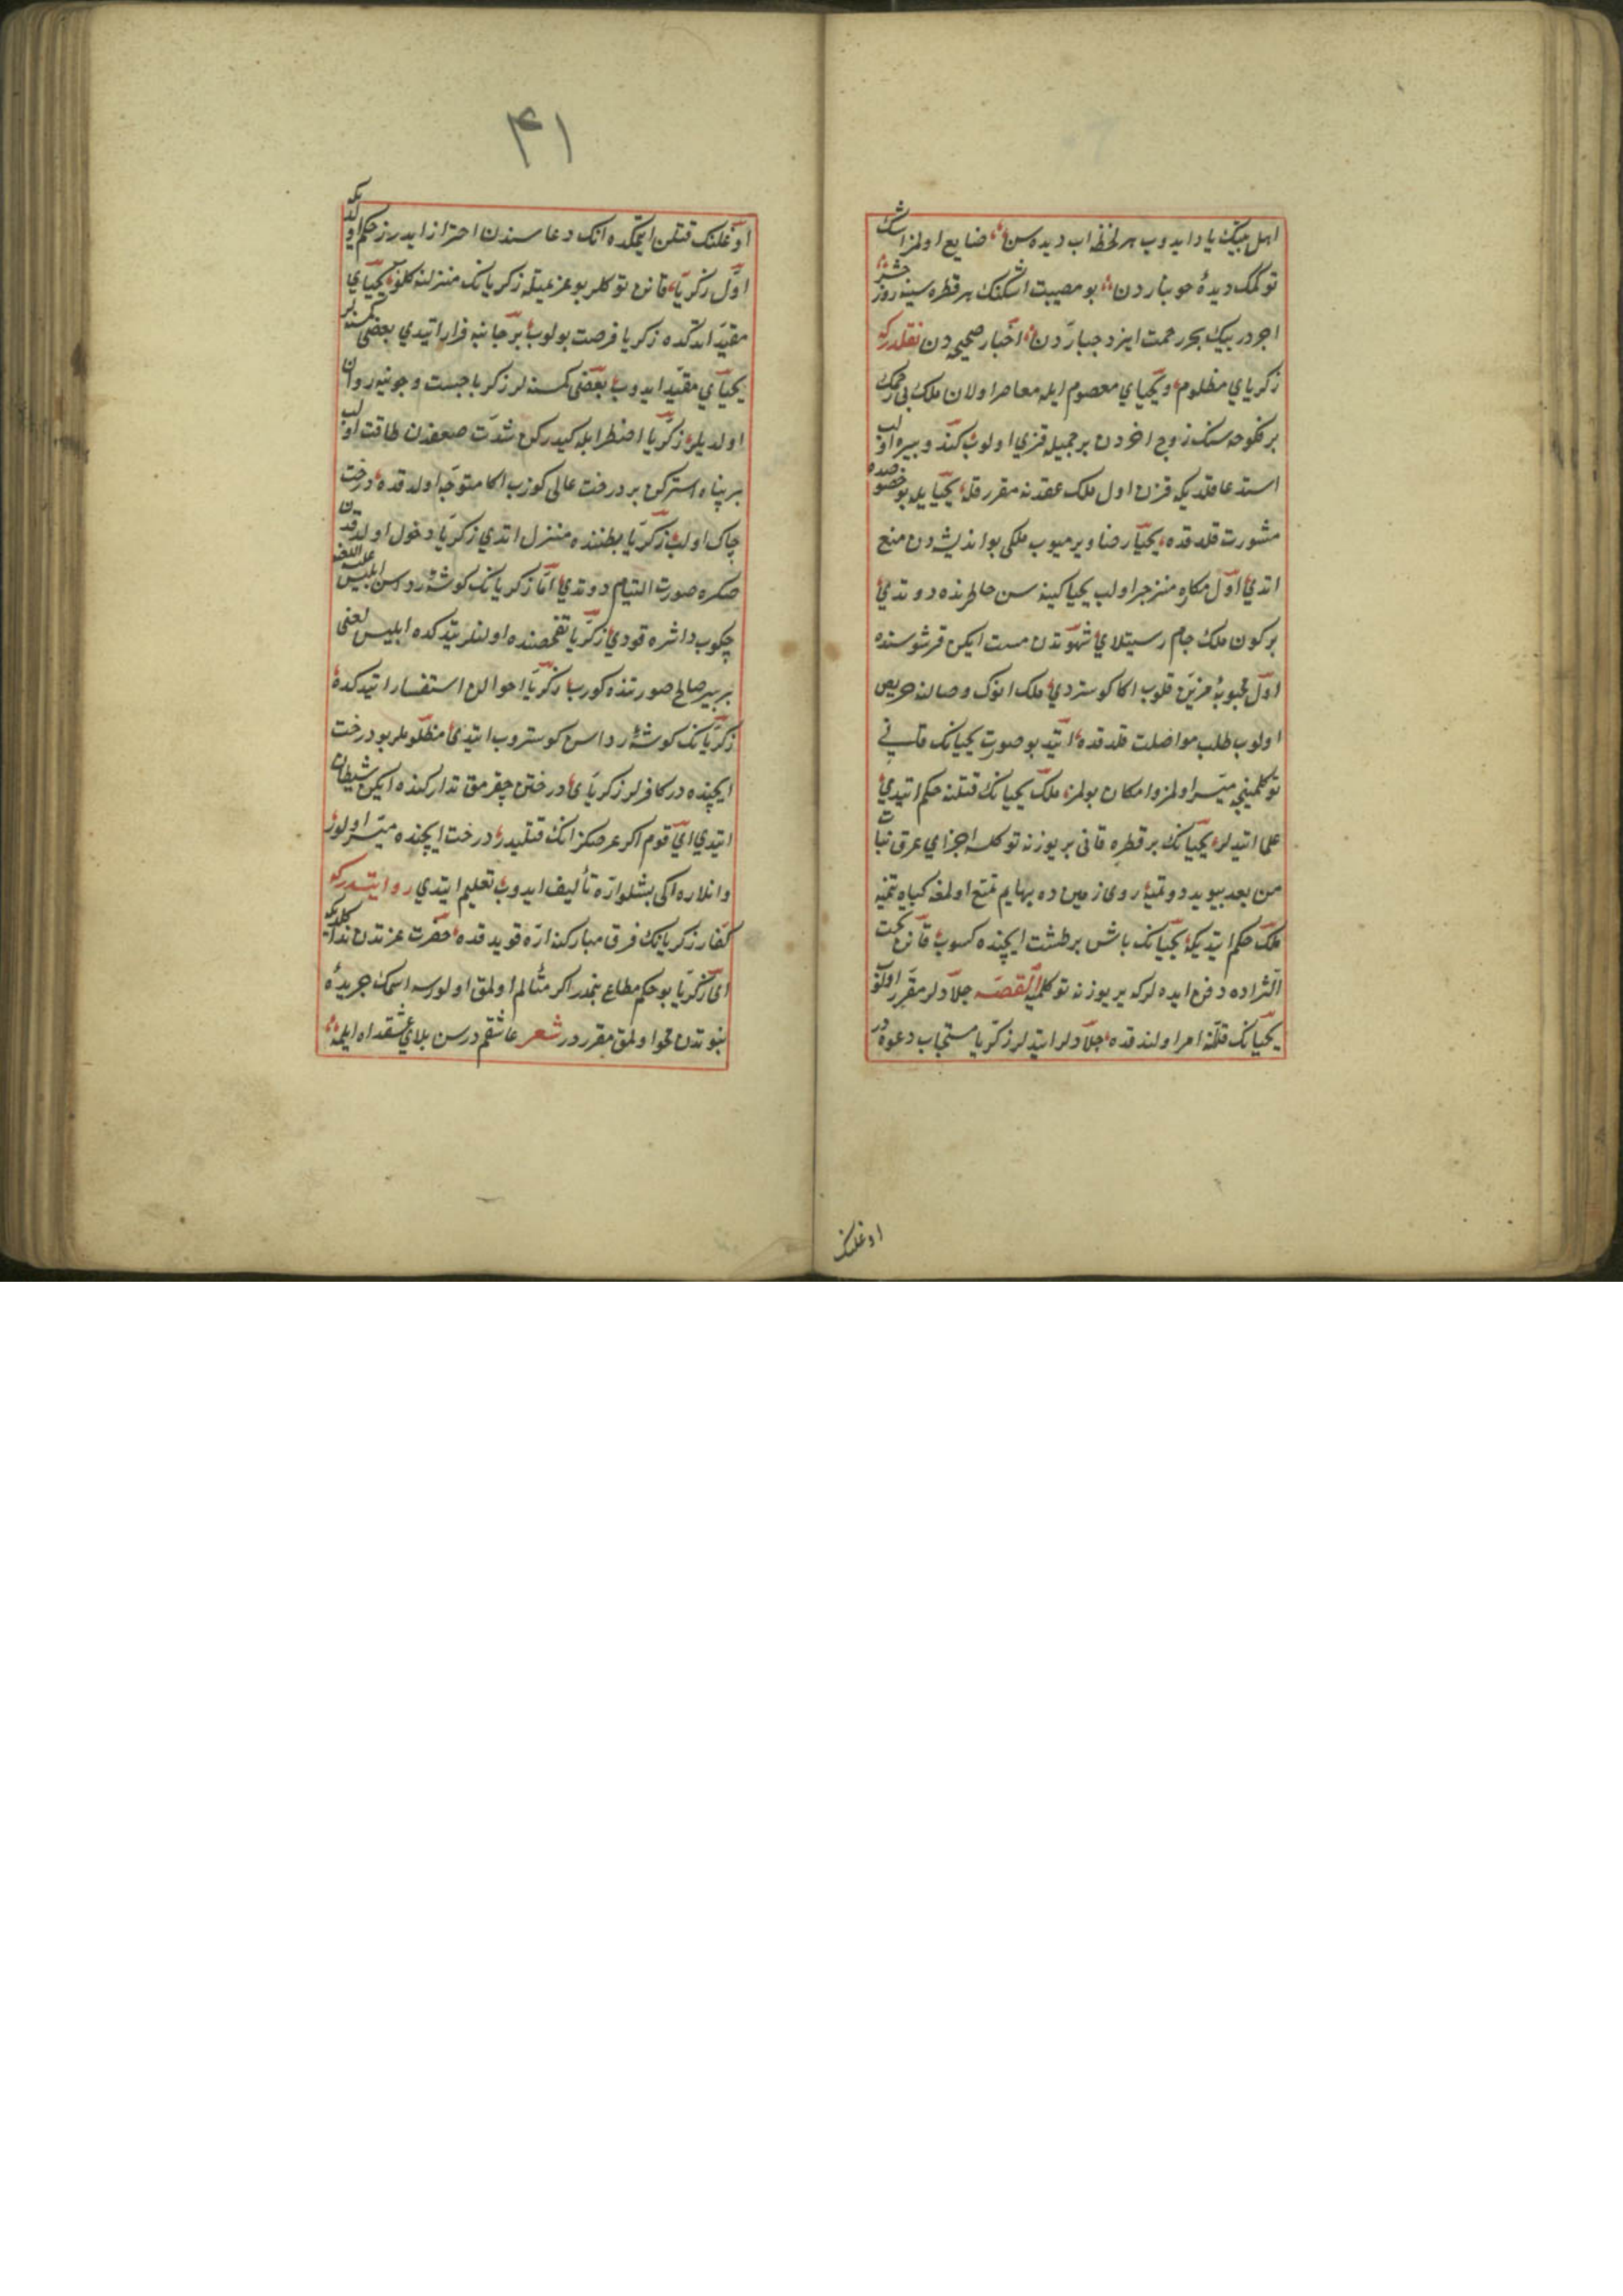 اهل بیتک یاد ایدوب هر لحظه اب دیده سن ضایع اولمز اشک
توکمک دیدهٔ خونبار دن بو مصیبت اشکنک هر قطره سینه روز حشر
اجر در بیک بحر رحمت ایزد جبار دن اخبار صحیحه دن نقلدر که
زکریای مظلوم و یحیای معصوم ایله معاصر اولان ملک بی رحمک
بر منکوحه سنک زوج اخردن بر جمیله قزی اولوب کند و پیره اولب
استدعا قلدیکه قزن اول ملک عقدنه مقرر قله یحیایله بو خصوصده
مشورت قلدقده یحیا رضا ویرمیوب ملکی بو اندیشه دن منع
اتدی اول مکاره منزجر اولب یحیا کینه سن خاطرنده دوتدی
بر کون ملک جام شهوتدن مست ایکن قرشوسنده
اول محبوبهٔ مزین قلوب اکا کوستردی ملک انوک وصالنه حریص
اولوب طلب مواصلت قلدقده اتید بو صورت یحیانک قانی
توکلمینجه میسر اولمز و امکان بولمز ملک یحیانک قتلنه حکم اتیدی
علما اتیدلر یحیانک بر قطره قانی بر یوزنه توکلسه اجزای عرق نبات
من بعد بیوید دوتمیه روی زمین ده بهایم تمتع اولمغه کیاه بتمیه
ملک حکم ایتدیکه یحیانک باشن بر طشت ایچنده کسوب قانن تحت
الثراده دفن ایده لر که یر یوزنه توکلمیه القصه جلادلر مقرر اولنو
یحیانک قتلنه امر اولندقده جلادلر ایتدلر زکریا مستجاب دعوة در
اوغلنک
۴۱
اوغلنک قتلن ایتمکده انک دعا سندن احتراز ایدرز حکم اولدیکه
اول زکریا قانن توکلر بو عزیمتله زکریانک منزلنه کلنو یحیای
مقید اتدکده زکریا فرصت بولوب بر جانبه فرار اتیدی بعضی کمسنه لر
یحیای مقید ایدوب بعضی کمسنه لر زکریا جست و جوینه روان
اولدیلر زکریا اضطرابله کیدرکن شدت ضعفدن طاقت اولب
بر پناه استرکن بر درخت عالی کوزب اکا متوجه اولدقده درخت
چاک اولب زکریا بطننده منزل اتدی زکریا دخول اولدقدن
صکره صورت التیام دوتدی اما زکریانک کوشهٔ رداسن ابلیس علیه اللعنه
چکوب داشره قودی زکریا تفحصنده اولنلر یتدکده ابلیس لعنی
بر پیر صالح صورتنده کورب زکریا احوالن استفسار اتیدکده
زکریانک کوشهٔ رداسن کوستروب ایتدی مظلوملر بو درخت
ایچنده در کافرلر زکریای درختن چقرمق تدارکنده ایکن شیطان
ایتدی ای قوم اکر غرضکز انک قتلیدر درخت ایچنده میسر اولور
و انلاره اکی بشلو اره تألیف ایدوب تعلیم ایتدی روایتدر که
کفار زکریانک فرق مبارکنه اره قویدقده حضرت عزتدن ندا کلدیکه
ای زکریا بو حکم مطاع بنمدر اکر متألم اولمق اولورسه اسمک جریدهٔ
نبوتدن محو اولمق مقرر در شعر عاشقم درسن بلای عشقده اه ایلمه